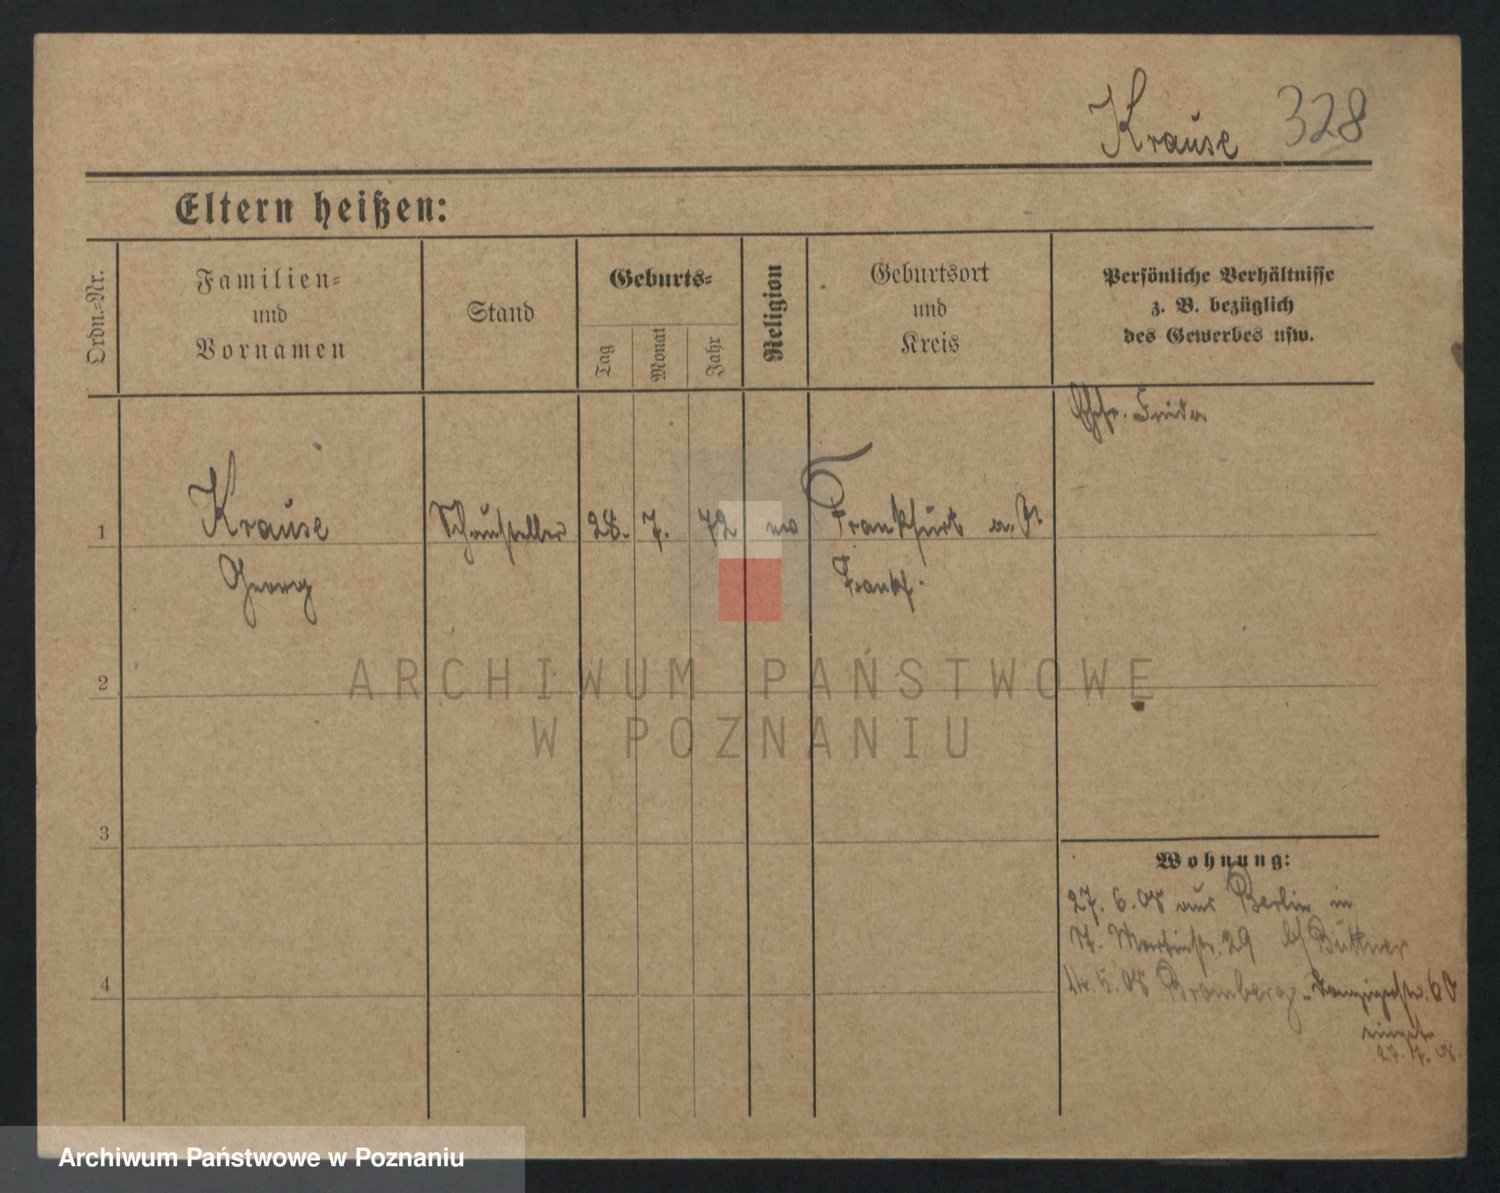 Krause 328
Eltern heißen:
Ordn.-Nr.
Familien-
und
Vornamen
Stand
Geburts-
Tag
Monat
Jahr
Religion
Geburtsort
und
Kreis
Persönliche Verhältnisse
z. B. bezüglich
des Gewerbes usw.
Frieda
1 Krause Schausteller 28. 7. 72 ev Frankfurt a. O
Georg Frankf.
2
3
4
Wohnung:
27. 6. 08 aus Berlin in
St. Martinstr. 29 b/ Büttner
08 Bromberg - Danzigerstr. 60
27. 7. 08.
ARCHIWUM PAŃSTWOWE
W POZNANIU
Archiwum Państwowe w Poznaniu